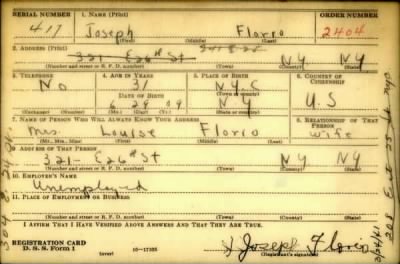 SERIAL NUMBER 1. NAME (Print) ORDER NUMBER
417 Joseph Florio 2404
(First) (Middle) (Last)
2. ADDRESS (Print)
321 E 26th St NY NY
(Number and street or R. F. D. number) (Town) (County) (State)
3. TELEPHONE 4. AGE IN YEARS 5. PLACE OF BIRTH 6. COUNTRY OF CITIZENSHIP
No 31 N.Y.C
DATE OF BIRTH (Town or county)
6 29 09 NY U.S
(Exchange) (Number) (Mo.) (Day) (Yr.) (State or country)
7. NAME OF PERSON WHO WILL ALWAYS KNOW YOUR ADDRESS 8. RELATIONSHIP OF THAT PERSON
Mrs. Louise Florio Wife
(Mr., Mrs., Miss) (First) (Middle) (Last)
9. ADDRESS OF THAT PERSON
321- E 26th St NY NY
(Number and street or R. F. D. number) (Town) (County) (State)
10. EMPLOYER'S NAME
Unemployed
11. PLACE OF EMPLOYMENT OR BUSINESS
(Number and street or R. F. D. number) (Town) (County) (State)
I AFFIRM THAT I HAVE VERIFIED ABOVE ANSWERS AND THAT THEY ARE TRUE.
REGISTRATION CARD
D. S. S. Form 1 (over) 16—17105 Joseph Florio
(Registrant's signature)